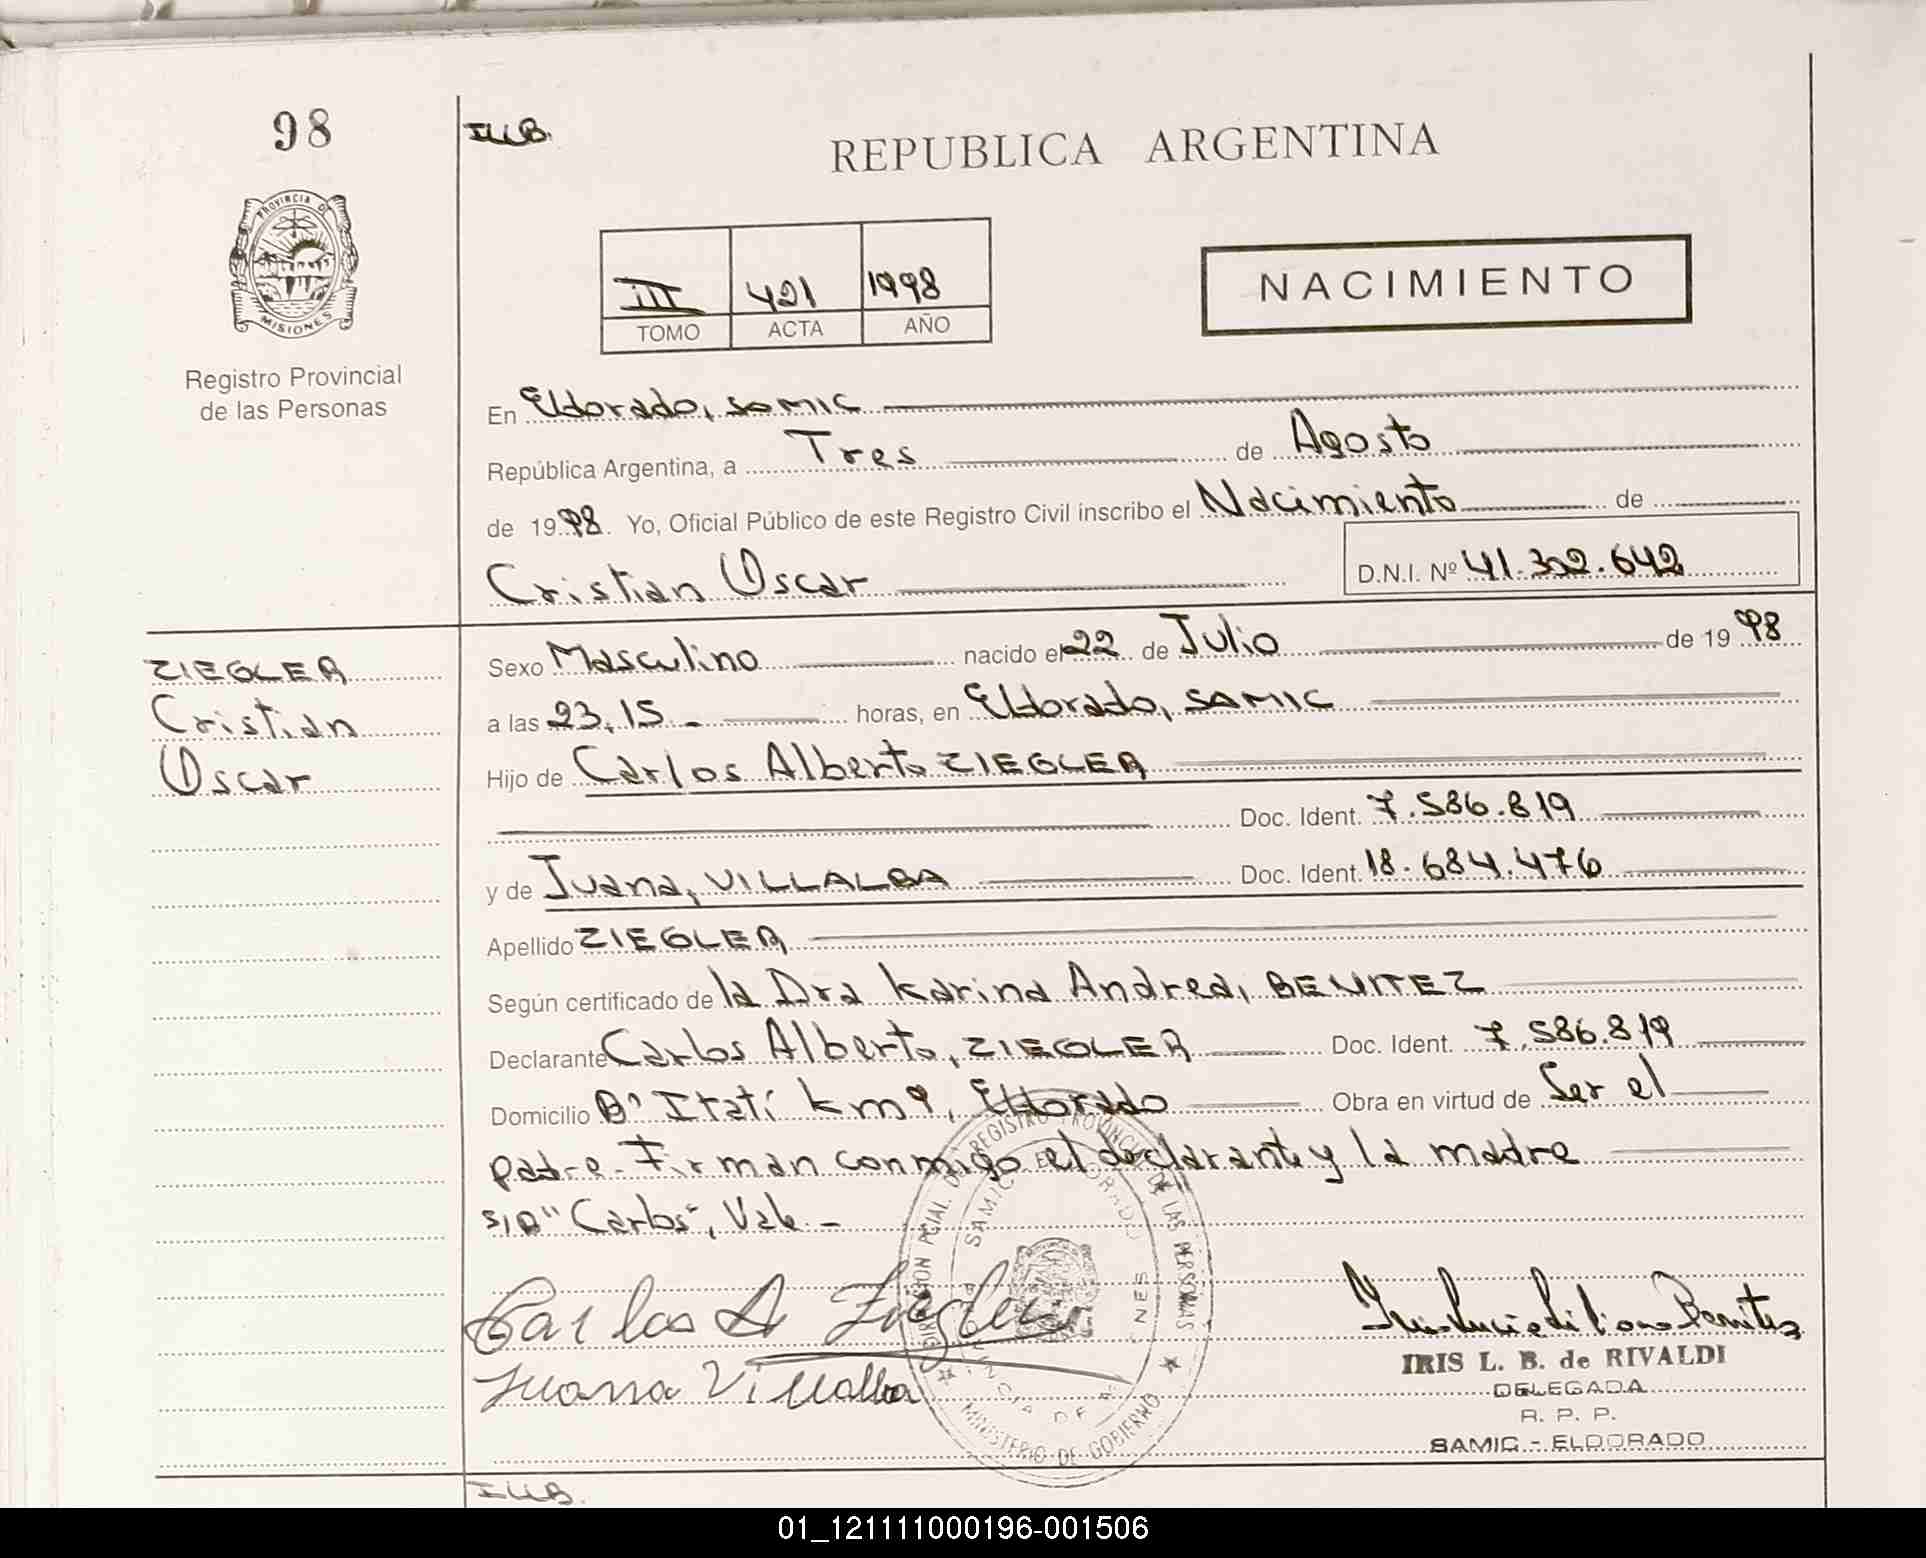 98
ILLB.
REPUBLICA ARGENTINA
PROVINCIA DE
MISIONES
Registro Provincial
de las Personas
III 421 1998
TOMO ACTA AÑO
NACIMIENTO
En Eldorado, SAMIC
República Argentina, a Tres de Agosto
de 1998. Yo, Oficial Público de este Registro Civil inscribo el Nacimiento de
Cristian Oscar D.N.I. Nº 41.302.642
ZIEGLER
Cristian
Oscar
Sexo Masculino nacido el 22 de Julio de 1998
a las 23,15 horas, en Eldorado, SAMIC
Hijo de Carlos Alberto ZIEGLER
Doc. Ident. 7.586.819
y de Juana, VILLALBA Doc. Ident. 18.684.476
Apellido ZIEGLER
Según certificado de la Dra Karina Andrea, BENITEZ
Declarante Carlos Alberto, ZIEGLER Doc. Ident. 7.586.819
Domicilio Bº Itatí km 9, Eldorado Obra en virtud de Ser el
padre. Firman conmigo el declarante y la madre
S/R "Carlos", Vale -
Carlos A Ziegler
Juana Villalba
IRIS L. B. de RIVALDI
DELEGADA
R. P. P.
SAMIC - ELDORADO
MINISTERIO DE GOBIERNO
ILLB.
01_121111000196-001506